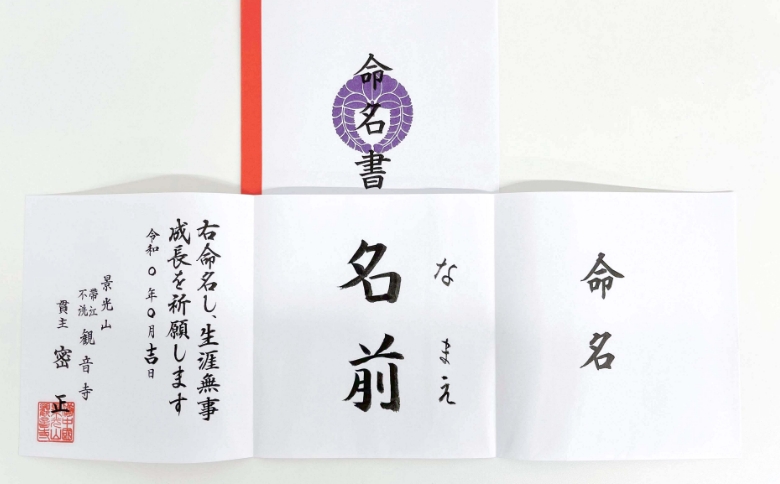 命名書
命名
なまえ
名前
右命名し、生涯無事
成長を祈願します
令和〇年〇月吉日
景光山
帯江
不洗
観音寺
貫主 密正